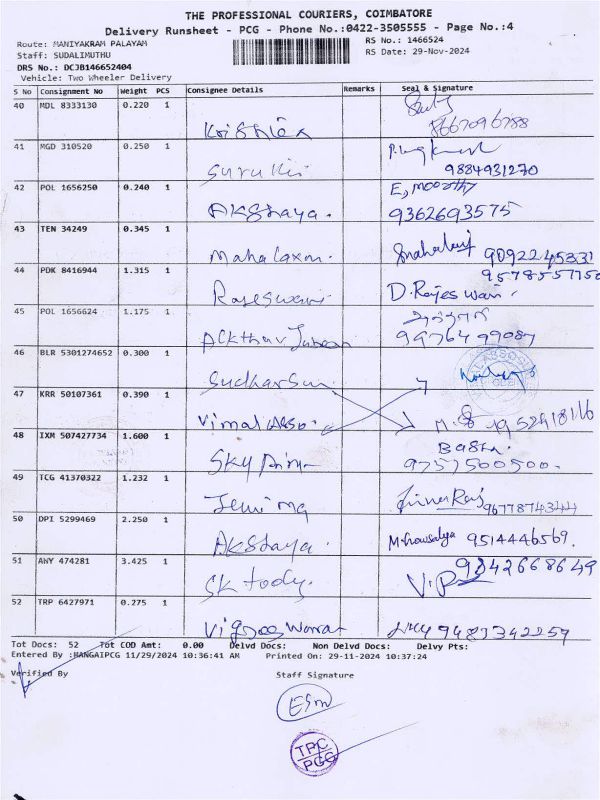 THE PROFESSIONAL COURIERS, COIMBATORE
Delivery Runsheet - PCG - Phone No.:0422-3505555 - Page No.:4
Route: MANIYAKRAM PALAYAM
RS No.: 1466524
Staff: SUDALIMUTHU
RS Date: 29-Nov-2024
DRS No.: DCJB146652404
Vehicle: Two Wheeler Delivery
S No Consignment No Weight PCS Consignee Details Remarks Seal & Signature
40 MDL 8333130 0.220 1
8667096788
41 MGD 310520 0.250 1
Suruthi
9884931270
42 POL 1656250 0.240 1 E, moorthy
AKShaya. 9362693575
43 TEN 34249 0.345 1
Mahalaxmi. 9092245331
44 PDK 8416944 1.315 1 9578557750
Rajeswari D. Rajeswari.
45 POL 1656624 1.175 1
9976499087
46 BLR 5301274652 0.300 1
Sudharsun
47 KRR 50107361 0.390 1
Vimal 1952918116
48 IXM 507427734 1.600 1
Sky 9757500500.
49 TCG 41370322 1.232 1
9677874344
50 DPI 5299469 2.250 1
AKShaya. M.howsalya 9514446569.
51 AWY 474281 3.425 1 9342668649
SK tody.
52 TRP 6427971 0.275 1
Vigneswaran 9483342259
Tot Docs: 52 Tot COD Amt: 0.00 Delvd Docs: Non Delvd Docs: Delvy Pts:
Entered By :MANGAIPCG 11/29/2024 10:36:41 AM Printed On: 29-11-2024 10:37:24
Verified By
Staff Signature
ESM
TPC
PCG